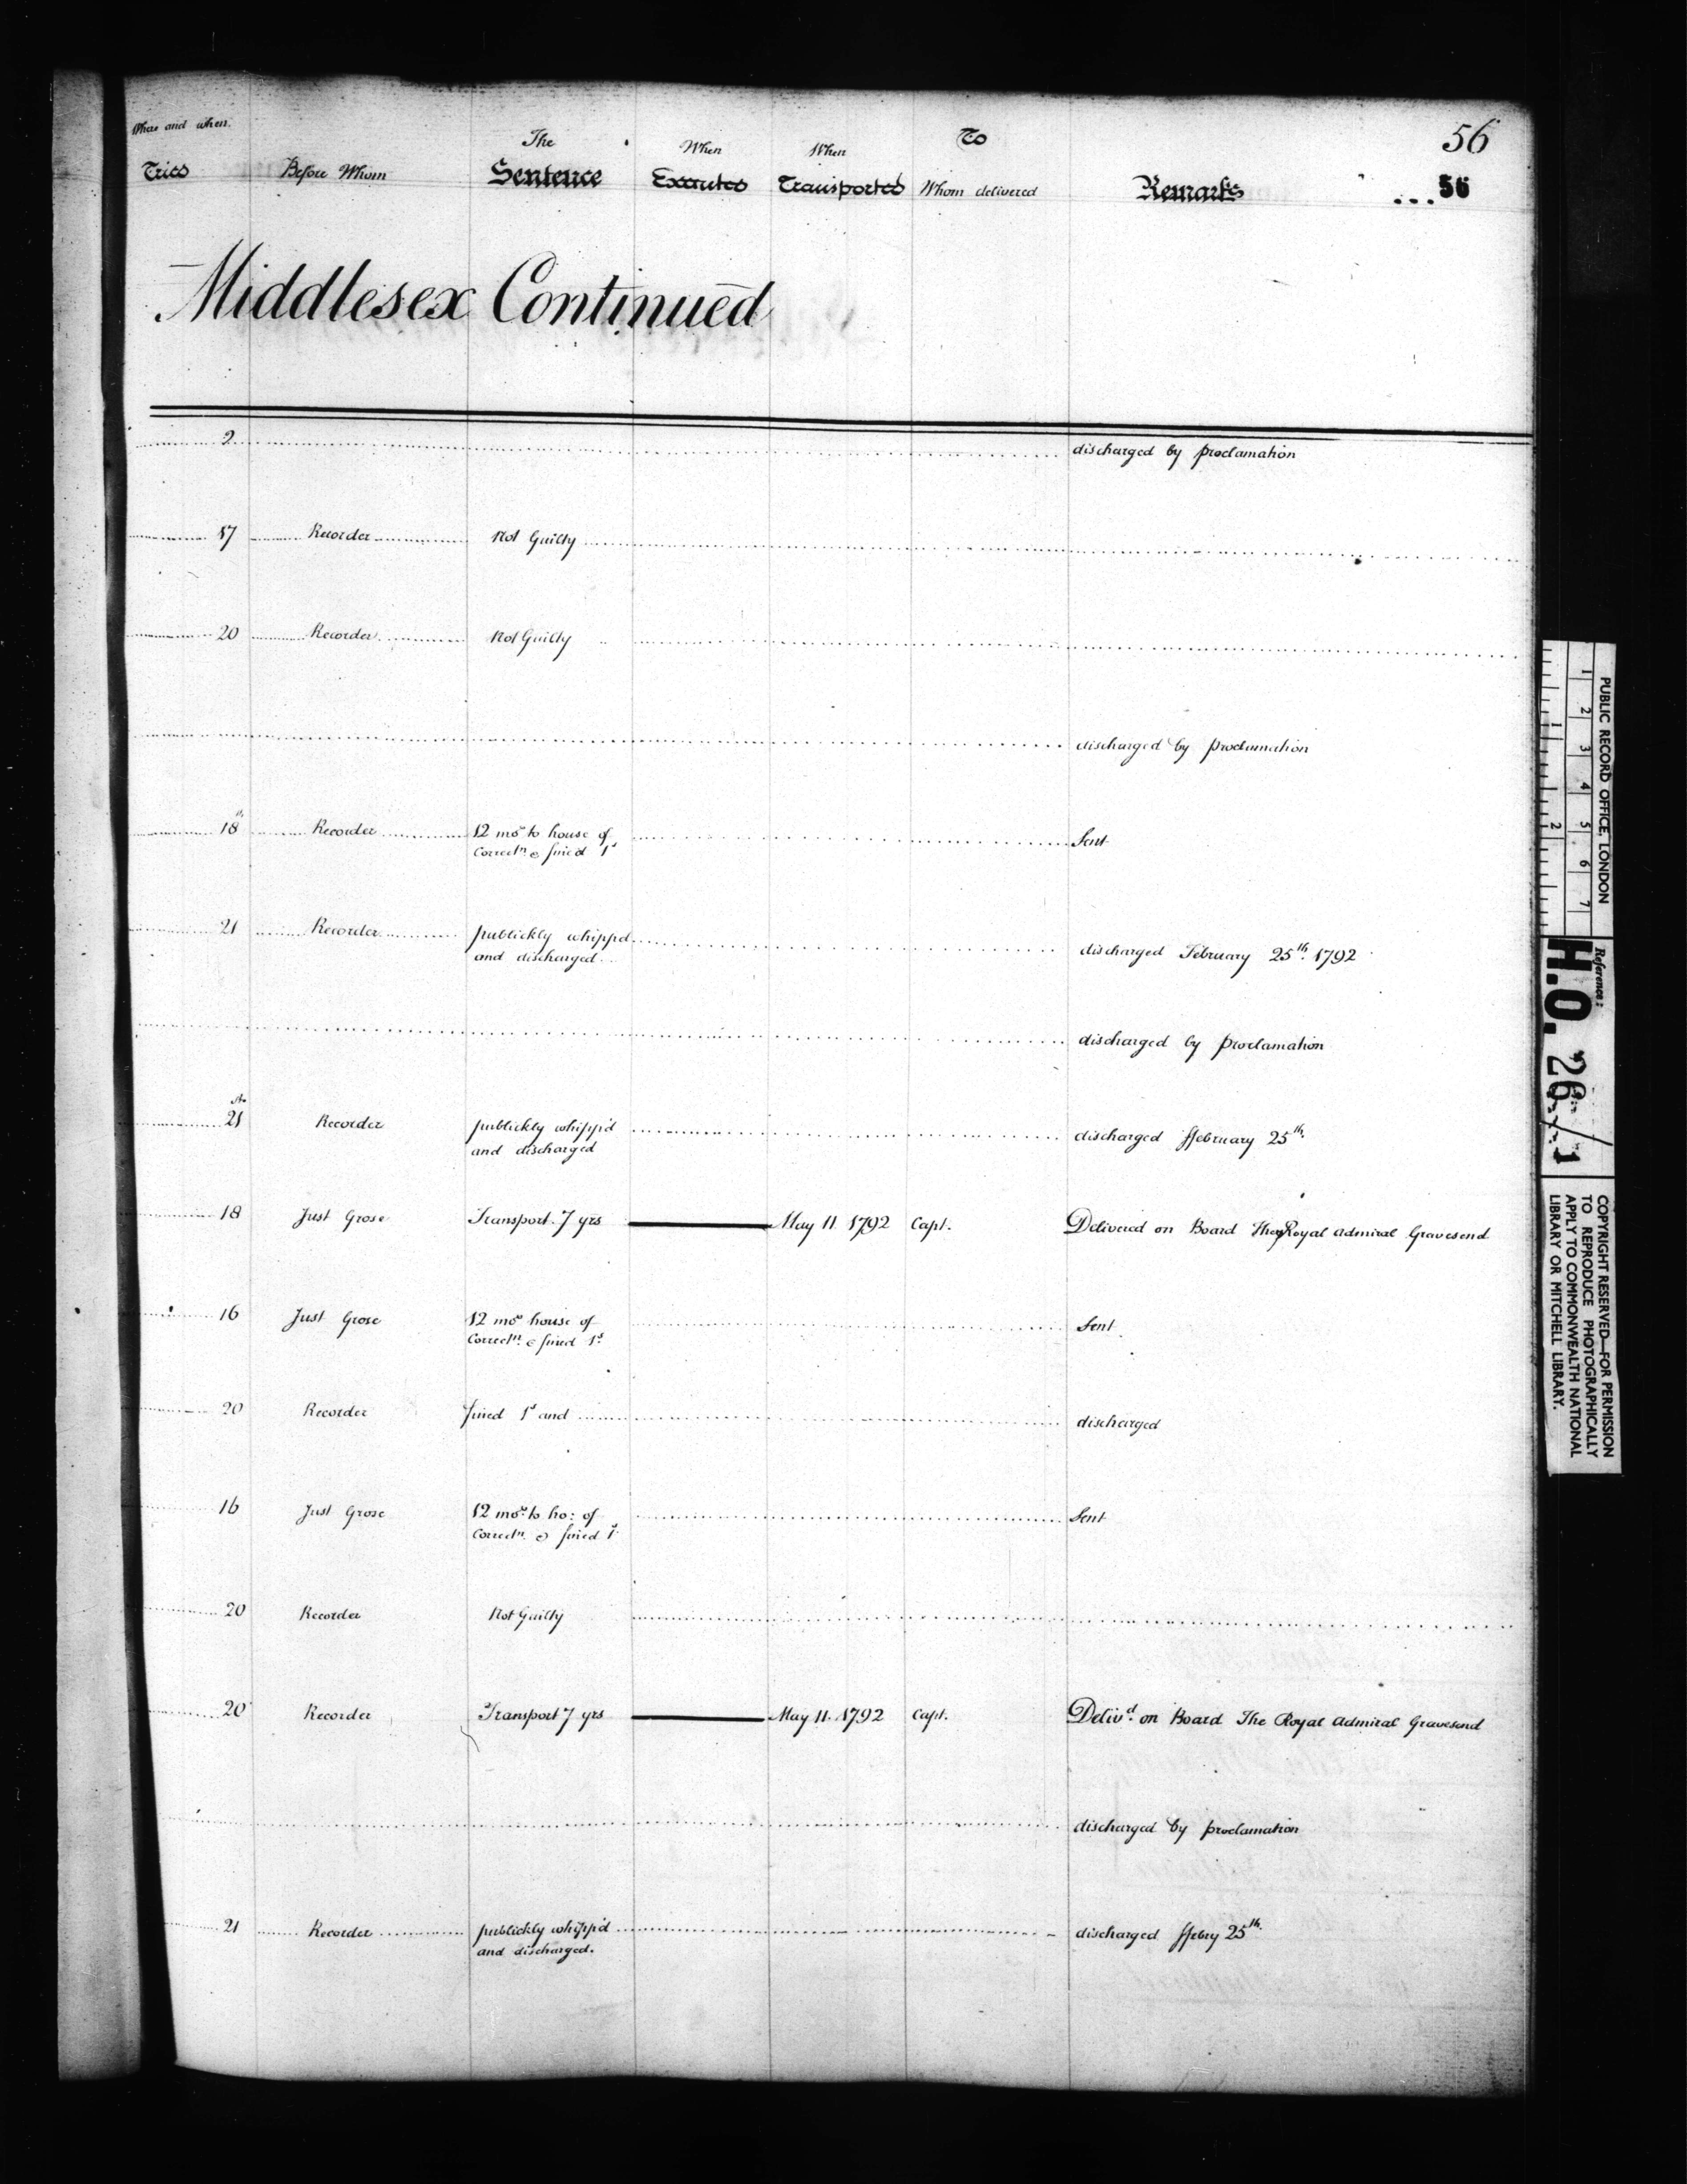 56
Where and when. The When When To
Tried Before Whom Sentence Executed Transported Whom delivered Remarks ...56
Middlesex Continued
2 discharged by proclamation
17 Recorder Not Guilty
20 Recorder Not Guilty
discharged by proclamation
18 Recorder 12 mos to house of Sent
Correctn. & fined 1s
21 Recorder publickly whippd discharged February 25th. 1792
and discharged
discharged by proclamation
21 Recorder publickly whipp'd discharged ffebruary 25th.
and discharged
18 Just Grose Transport. 7 yrs May 11. 1792 Capt. Delivered on Board The Royal Admiral Gravesend
16 Just Grose 12 mos house of Sent
Correctn. & fined 1s.
20 Recorder fined 1s and discharged
16 Just Grose 12 mos. to ho: of Sent
Correctn. & fined 1s
20 Recorder Not Guilty
20 Recorder Transport 7 yrs May 11. 1792 Capt. Delivd. on Board The Royal Admiral Gravesend
discharged by proclamation
21 Recorder publickly whipp'd discharged ffebry 25th.
and discharged.
PUBLIC RECORD OFFICE, LONDON
1 2 3 4 5 6 7
1 2
Reference:
H.O. 26/1
COPYRIGHT RESERVED—FOR PERMISSION
TO REPRODUCE PHOTOGRAPHICALLY
APPLY TO COMMONWEALTH NATIONAL
LIBRARY OR MITCHELL LIBRARY.